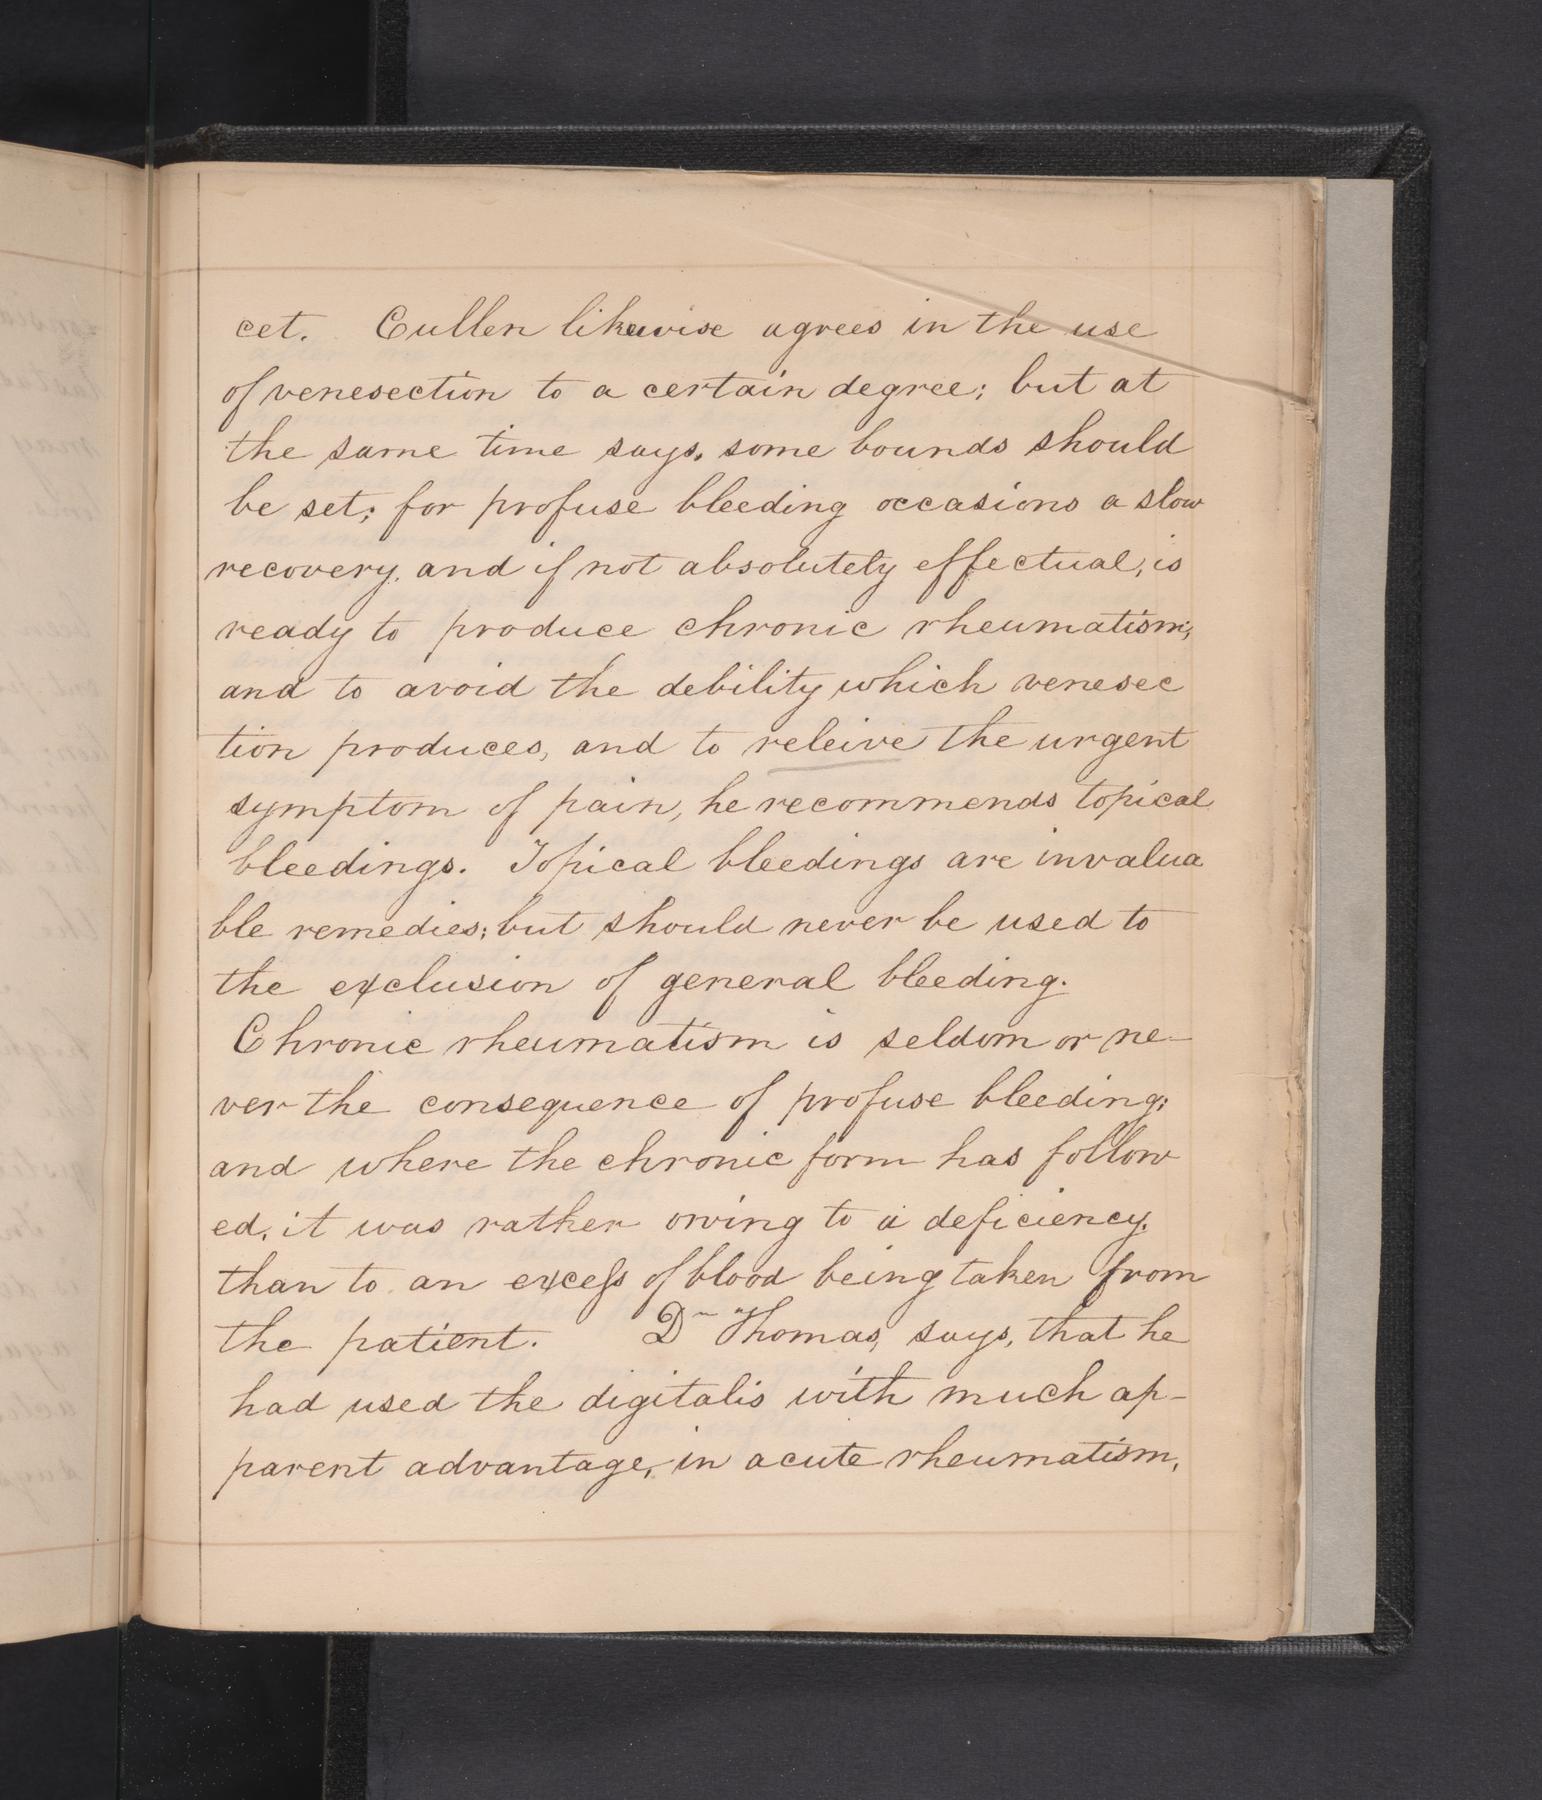 cet. Cullen likewise agrees in the use
of venesection to a certain degree; but at
the same time says, some bounds should
be set; for profuse bleeding occasions a slow
recovery, and if not absolutely effectual, is
ready to produce chronic rheumatism;
and to avoid the debility which venesec
tion produces, and to releive the urgent
symptom of pain, he recommends topical
bleedings. Topical bleedings are invalua
ble remedies; but should never be used to
the exclusion of general bleeding.
Chronic rheumatism is seldom or ne-
ver the consequence of profuse bleeding;
and where the chronic form has follow
ed, it was rather owing to a deficiency,
than to an excess of blood being taken from
the patient. Dr Thomas, says, that he
had used the digitalis with much ap-
parent advantage, in acute rheumatism,